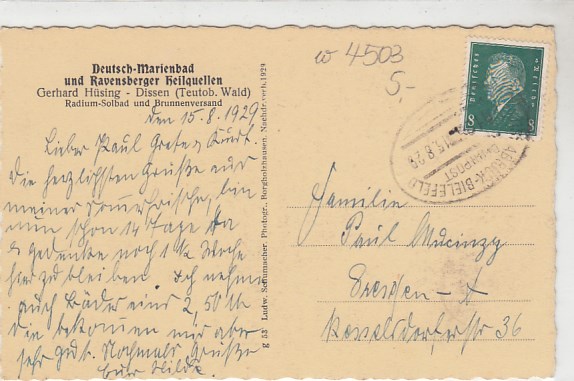 Deutsch-Marienbad
und Ravensberger Heilquellen
Gerhard Hüsing - Dissen (Teutob. Wald)
Radium-Solbad und Brunnenversand
den 15.8.1929
Lieber Paul Grete & Kurt.
Die herzlichsten Grüße aus
meiner Sommerfrische, bin
nun schon 14 Tage da
& gedenke noch 1½ Woche
hier zu bleiben. Ich nehme
auch Bäder eins 2,50 M
die bekommen mir aber
sehr gut. Nochmals Grüße
Eure Hilde.
g 53 Ludw. Schumacher, Photogr., Borgholzhausen, Nachdr. verb. 1929
w 4503
5,-
Deutsches Reich
8 8
BRÜCK-BIELEFELD
BAHNPOST
15.8.29
Familie
Paul
Dresden - A
Kesselsdorferstr 36